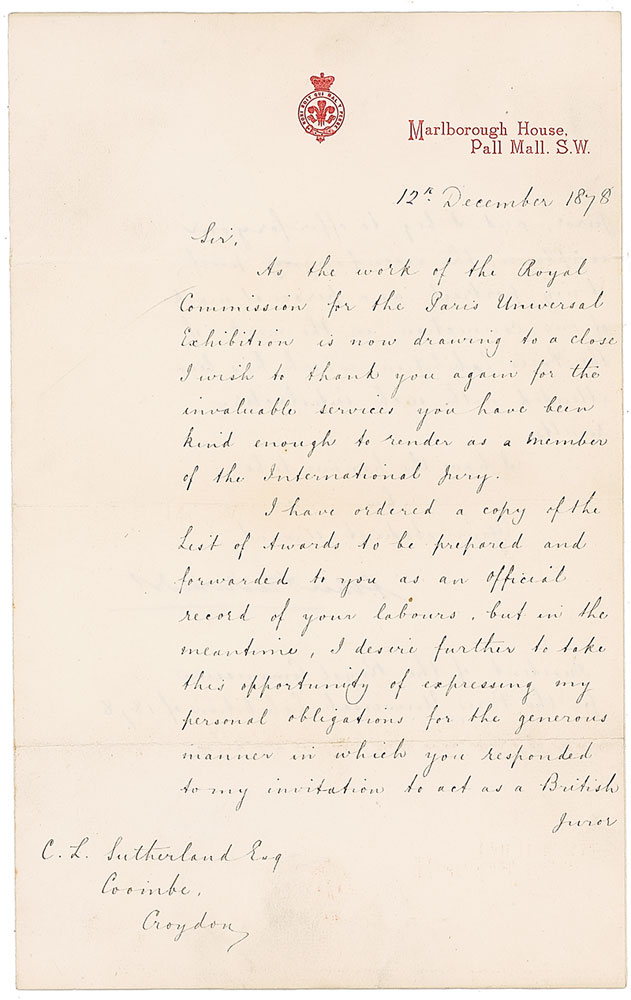 Marlborough House,
Pall Mall. S.W.
12th December 1878
Sir,
As the work of the Royal
Commission for the Paris Universal
Exhibition is now drawing to a close
I wish to thank you again for the
invaluable services you have been
kind enough to render as a member
of the International Jury.
I have ordered a copy of the
List of Awards to be prepared and
forwarded to you as an official
record of your labours, but in the
meantime, I desire further to take
this opportunity of expressing my
personal obligations for the generous
manner in which you responded
to my invitation to act as a British
Juror
C. L. Sutherland Esq
Coombe,
Croydon,